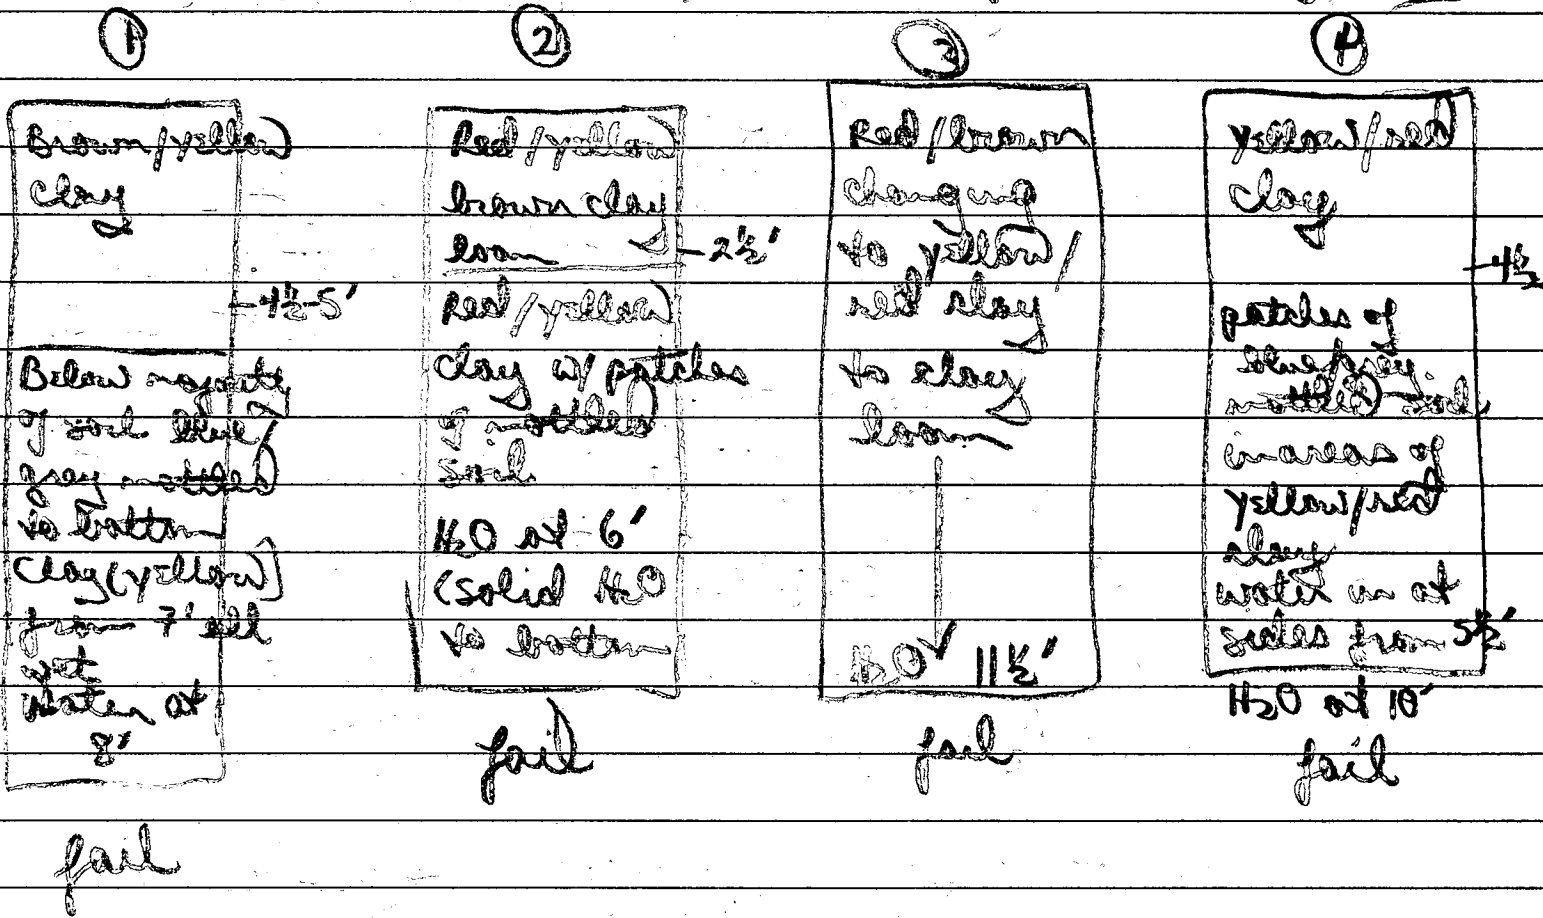 1
Brown/yellow
clay
-4½-5'
Below majority
of soil blue/
grey mottled
to bottom
clay (yellow)
from 7' all
wet
Water at
8'
fail
2
Red/yellow
brown clay
loam -2½'
Red/yellow
clay w/ patches
of mottled
soil
H2O at 6'
(solid H2O
to bottom
fail
3
Red/brown
changing
to yellow/
red clay
to clay
loam
H2O 11½'
fail
4
yellow/red
clay
-4½
patches of
blue/grey
mottled soil
in areas of
yellow/red
clay
water in at
sides from 5½'
H2O at 10'
fail